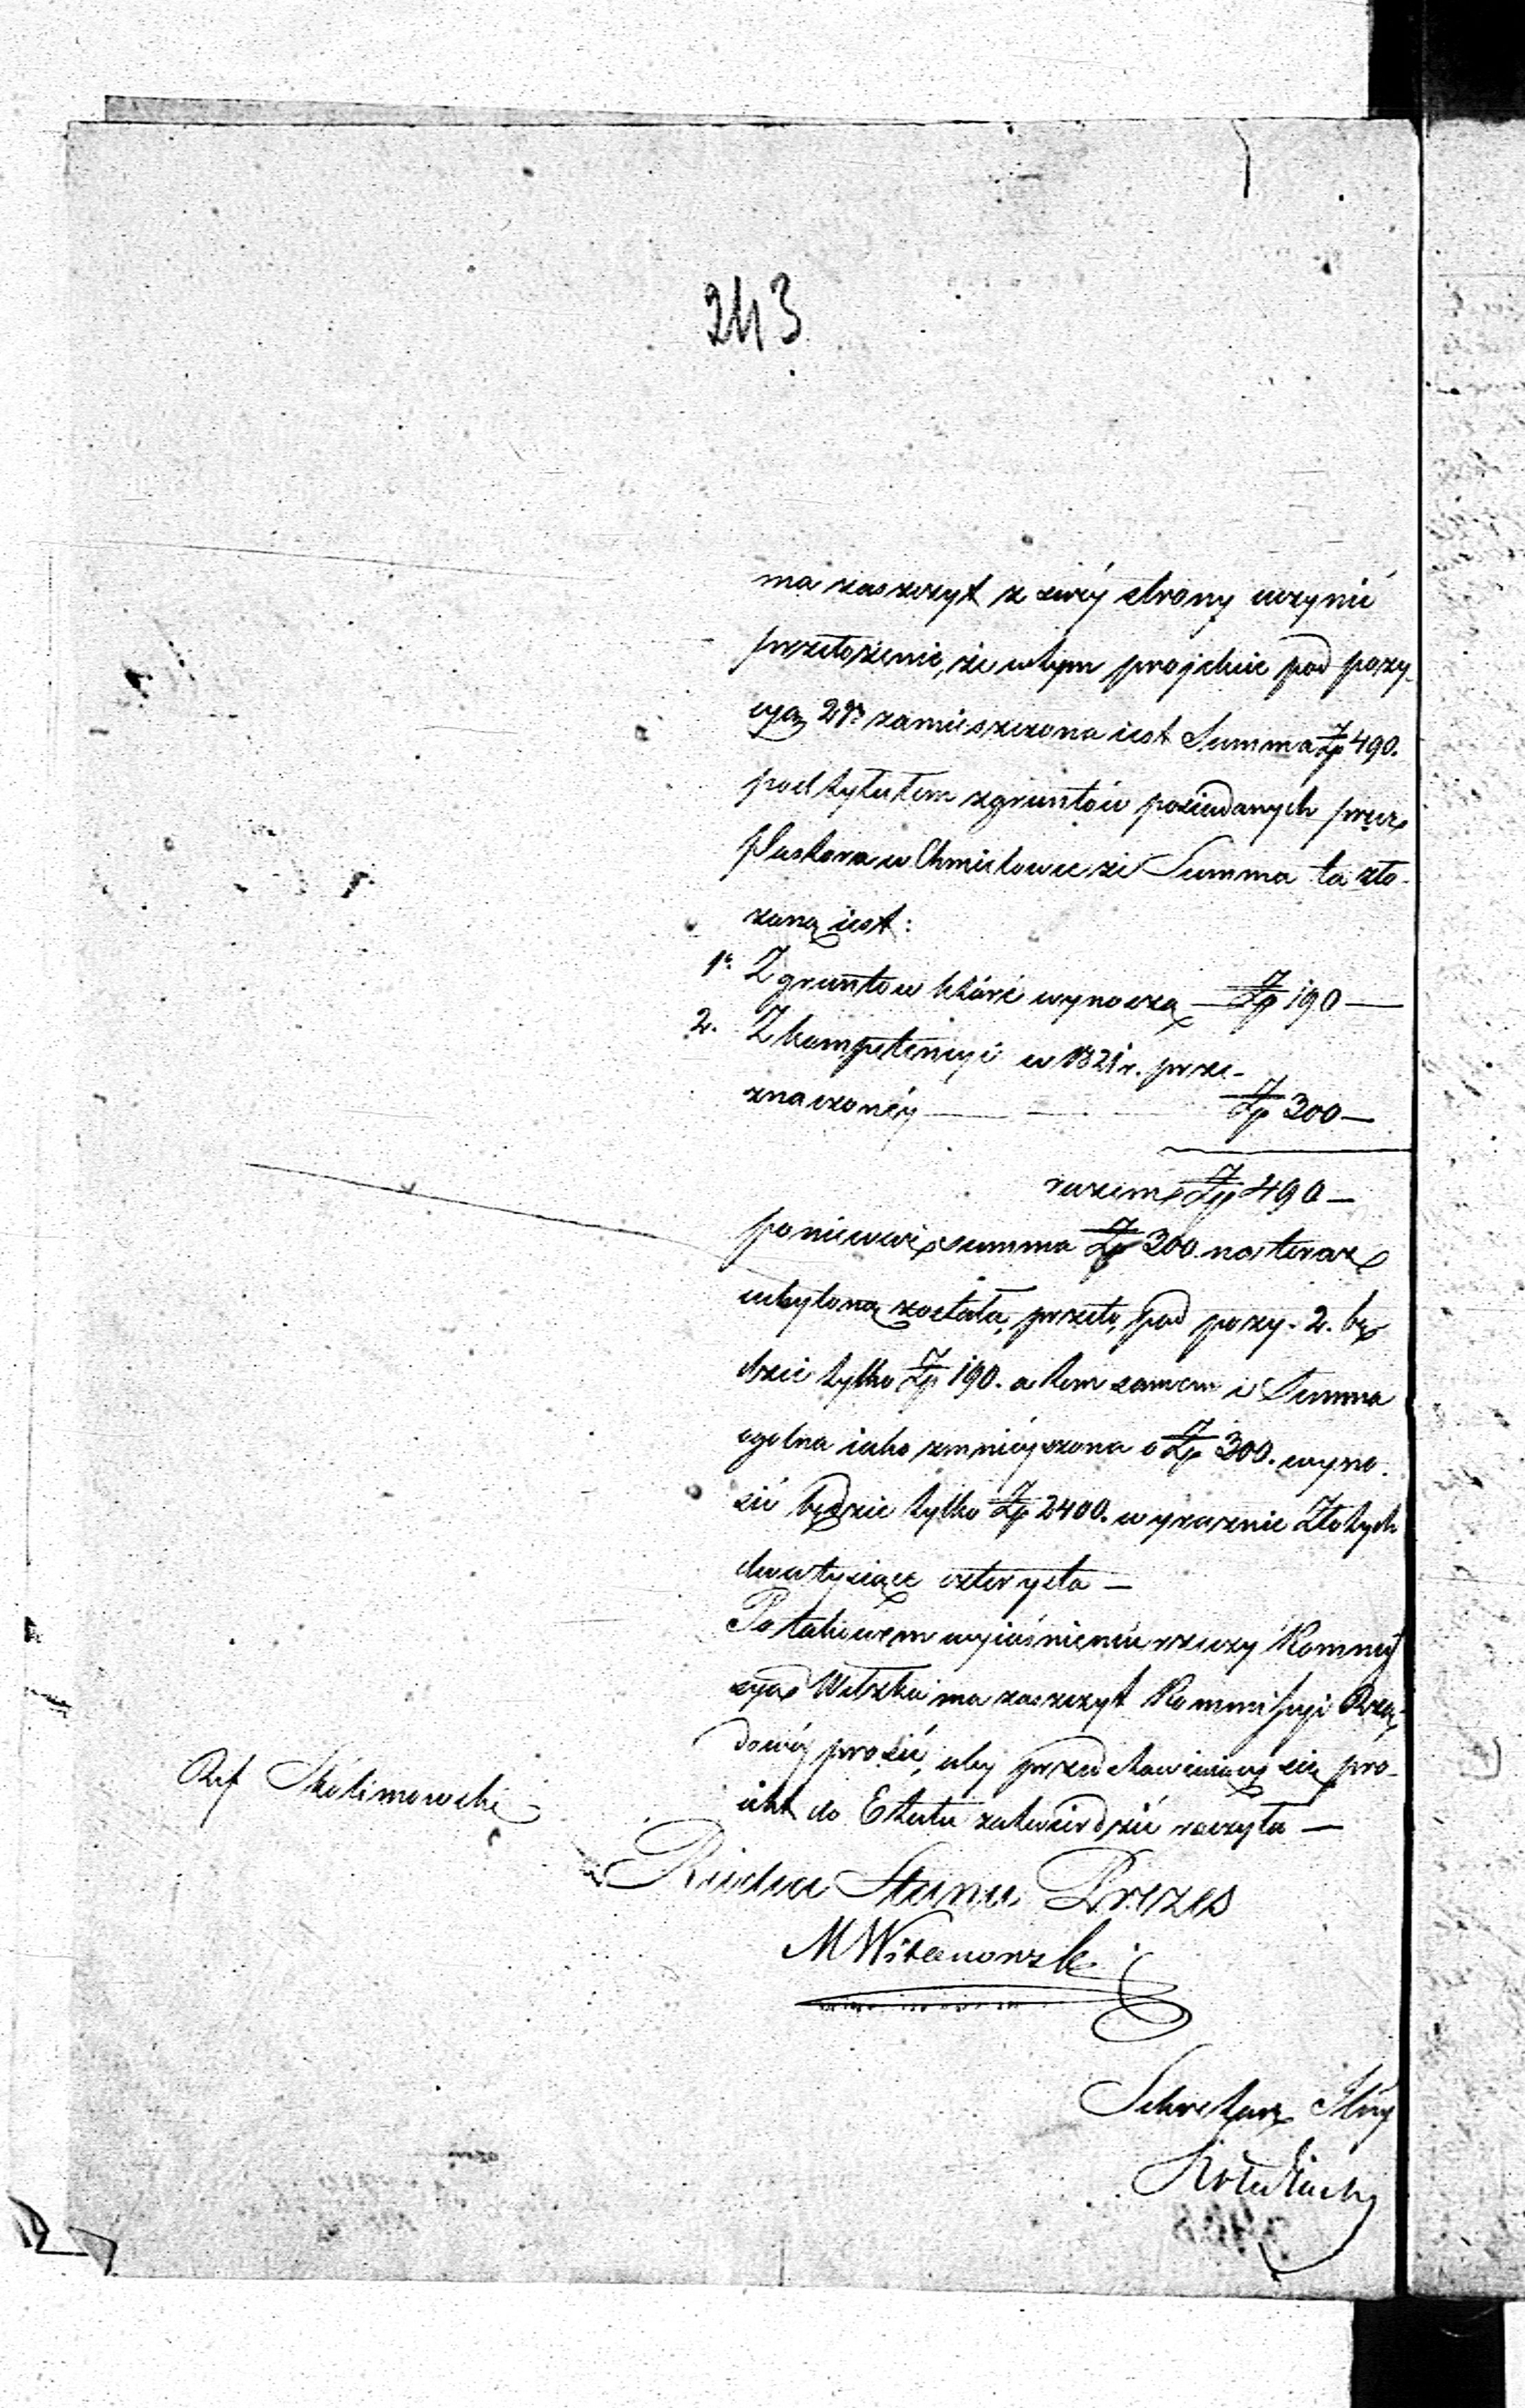 243
ma zaszczyt z swéy strony uczynić
przełożenie, że w tym projekcie pod pozy-
cyą 2gą zamieszczona iest Summa Zp 490.
pod tytułem z gruntów posiadanych przez
Pastora w Chmielowie że Summa ta zło-
żoną iest:
1. Z gruntów które wynoszą — Zp 190 —
2. Z kompetencyi w 1821 r. prze-
znaczonéy — Zp 300 —
razem Zp 490 —
ponieważ summa Zp 300 na teraz
uchyloną została, przeto, pod pozy. 2. bę
dzie tylko Zp 190. a tem samem i Summa
ogolna iako zmniéyszona o Zp 300. wyno-
sić będzie tylko Zp 2400. wyraznie Złotych
dwa tysiące czterysta —
Po takowém wyiaśnieniu rzeczy Kommis
syia Wdzka ma zaszczyt Kommissyi Rzą-
dowéy prosić, aby przedstawiaiący się pro-
iekt do Etatu zatwierdzić raczyła —
Ref Skolimowski
Radca Stanu Prezes
M Witanowski
Sekretarz Jlny